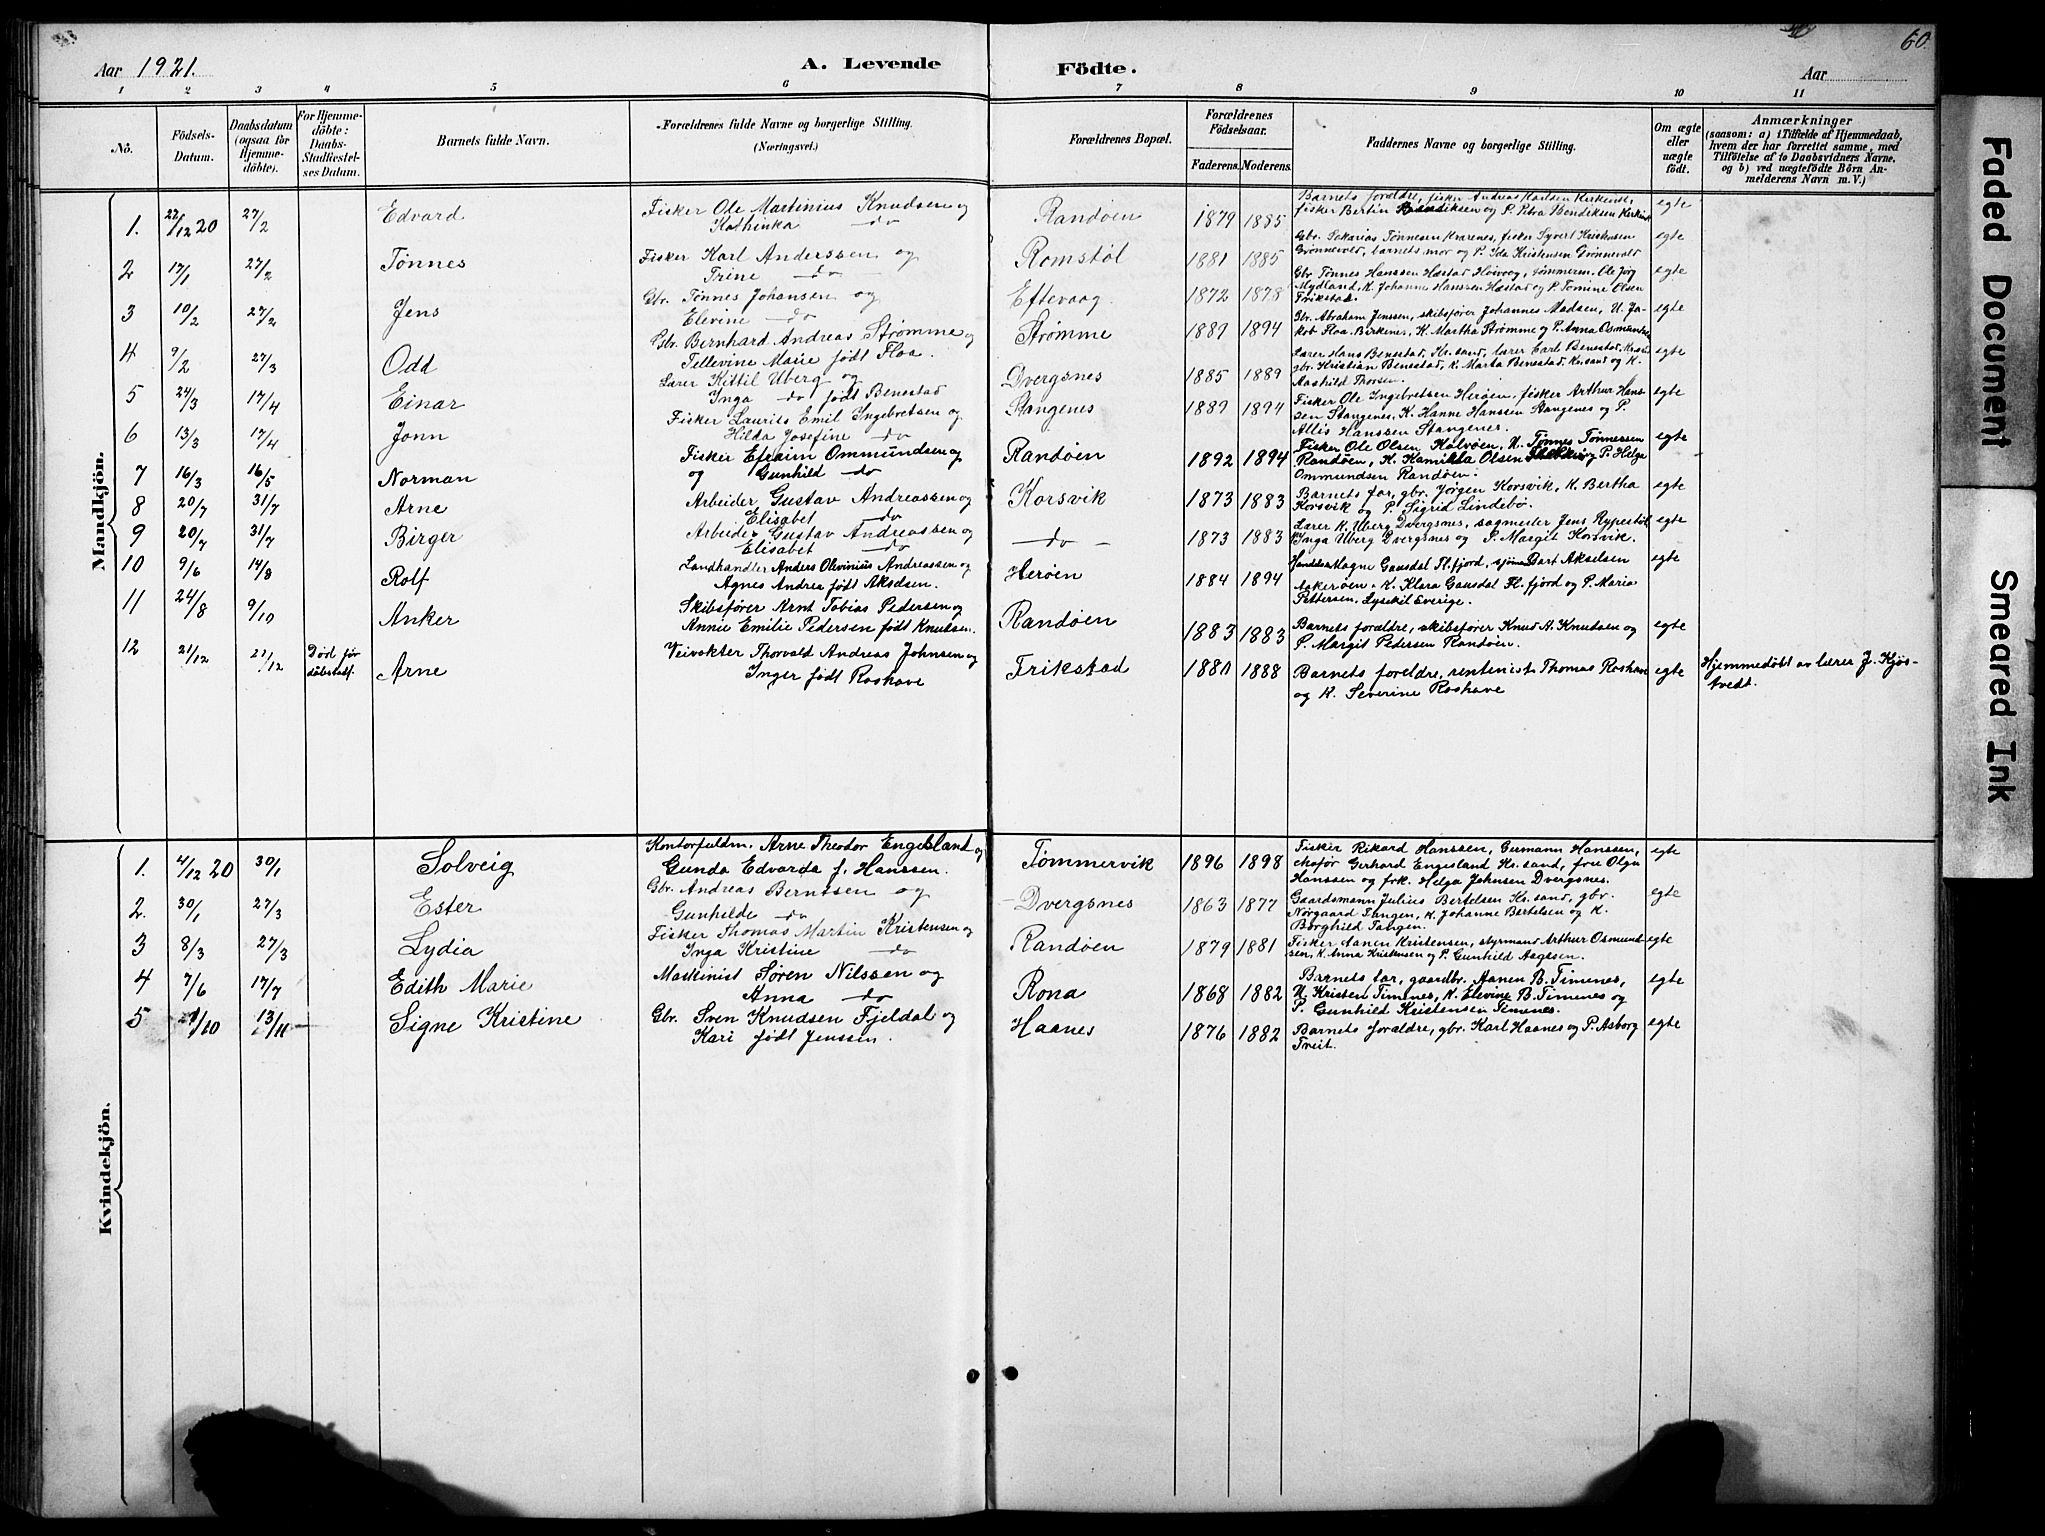 60
Aar 1921.
A. Levende Födte.
Aar
1 2 3 4 5 6 7 8 9 10 11
No.
Födsels-Datum.
Daabsdatum (ogsaa for Hjemme-döbte).
For Hjemme-döbte: Daabs-Stadfæstel-ses Datum.
Barnets fulde Navn.
Forældrenes fulde Navne og borgerlige Stilling. (Næringsvei.)
Forældrenes Bopæl.
Forældrenes Födselsaar.
Faderens. Moderens.
Faddernes Navne og borgerlige Stilling.
Om ægte eller uægte födt.
Anmærkninger
(saasom: a) i Tilfælde af Hjemmedaab,
hvem der har forrettet samme, med
Tilföielse af to Daabsvidners Navne,
og b) ved uægtefödte Börn An-
melderens Navn m. V.)
Mandkjön.
1. 22/12 20 27/2 Edvard Fisker Ole Martinius Knudsen og
Kathinka do
Randøen 1879 1885 Barnets foreldre, fisker Andreas Karlsen
fisker Bertin Bendiksen og P. Petra Bendiksen egte
2 17/1 27/2 Tønnes Fisker Karl Anderssen og
Trine do
Romstøl 1881 1885 Gbr. Sakarias Tønnesen Krarenes, fisker Syvert Kristensen
Grønnevold, barnets mor og P. Ida Kristensen Grønnevold egte
3 10/2 27/2 Jens Gbr. Tønnes Johansen og
Elevine do
Eftevaag 1872 1878 Gbr Tønnes Hanssen Hæstad Høivaag, tømmerm. Ole Jørg
Mydland, K. Johanne Hanssen Hæstad og P. Tomine Olsen
Frikstad. egte
4 9/2 27/3 Odd Gbr. Bernhard Andreas Strømme og
Tellevine Marie født Floa.
Strømme 1889 1894 Gbr. Abraham Jenssen, skibsfører Johannes Madsen, U. Ja-
kob Floa Birkenes, K. Martha Strømme og P. Anna egte
5 24/3 17/4 Einar Lærer Kittil Uberg og
Inga do født Benestad
Dvergsnes 1885 1889 Lærer Hans Benestad, Kr.sand, lærer Carl Benestad,
gbr. Kristian Benestad, K. Marta Benestad, Kr.sand og K.
Aashild Thorsen. egte
6 13/3 17/4 Jonn Fisker Laurits Emil Ingebretsen og
Hilda Josefine do
Stangenes 1889 1894 Fisker Ole Ingebretsen Herøen, fisker Arthur Hans-
sen Stangenes, K. Hanne Hanssen Stangenes og P.
Allis Hanssen Stangenes. egte
7 16/3 16/5 Norman Fisker Efraim Ommundsen og
og Gunhild do
Randøen 1892 1894 Fisker Ole Olsen Kalvøen, U. Tønnes Tønnessen
Randøen, K. Hamilla Olsen og P. Helga
Ommundsen Randøen. egte
8 20/7 31/7 Arne Arbeider Gustav Andreassen og
Elisabet do
Korsvik 1873 1883 Barnets far, gbr. Jørgen Korsvik, K. Bertha
Korsvik og P. Sigrid Lindebø. egte
9 20/7 31/7 Birger Arbeider Gustav Andreassen og
Elisabet do
do 1873 1883 Lærer K. Uberg Dvergsnes, sagmester Jens Rypestøl
Inga Uberg Dvergsnes og P. Margit Korsvik. egte
10 9/6 14/8 Rolf Landhandler Anders Olevinius Andreassen og
Agnes Andrea født Akselsen.
Herøen 1884 1894 Magne Gausdal Fl.fjord, Bart Akselsen
Aakerøen, K. Klara Gausdal Fl. fjord og P. Maria
Pettersen, Lysekil Sverige. egte
11 24/8 9/10 Anker Skibsfører Arnt Tobias Pedersen og
Annie Emilie Pedersen født Knutsen.
Randøen 1883 1883 Barnets foreldre, skibsfører Knud A. Knudsen og
P. Margit Pedersen Randøen. egte
12 21/12 21/12 Død før
dåbstadf. Arne Veivokter Thorvald Andreas Johnsen og
Inger født Roshave
Frikstad 1880 1888 Barnets foreldre, rentenist Thomas Roshave
og K. Severine Roshave egte Hjemmedøbt av lærer J. Kjøs-
tvedt.
Kvindekjön.
1. 4/12 20 30/1 Solveig Kontorfuldm. Arne Theodor Engesland og
Gunda Edvarda f. Hanssen.
Tømmervik 1896 1898 Fisker Rikard Hanssen, Gumann Hanssen,
chafør Gerhard Engesland Kr.sand, frue Olga
Hanssen og frk. Helga Johnsen Dvergsnes. egte
2. 30/1 27/3 Ester Gbr. Andreas Berntsen og
Gunhilde do
Dvergsnes 1863 1877 Gaardsmann Julius Bertelsen Kr.sand, gbr.
Nørgaard Tangen, K. Johanne Bertelsen og K.
Borghild Tangen. egte
3 8/3 27/3 Lydia Fisker Thomas Martin Kristensen og
Inga Kristine do
Randøen 1879 1881 Fisker Aanen Kristensen, styrmand Arthur Osmund-
sen, K. Anna Kristensen og P. Gunhild Aagesen. egte
4 7/6 17/7 Edith Marie Maskinist Søren Nilssen og
Anna do
Rona 1868 1882 Barnets far, gaardbr. Aanen B. Timenes,
U. Kristen Timenes, K. Elevine B. Timenes og
P. Gunhild Kristensen Timenes. egte
5 /10 13/11 Signe Kristine Gbr. Sven Knudsen Fjeldal og
Kari født Jenssen.
Haanes 1876 1882 Barnets foreldre, gbr. Karl Haanes og P. Asborg
Treit. egte
Faded Document
Smeared Ink